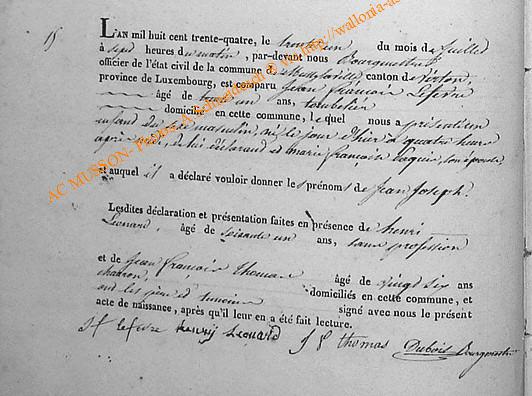 15
L'AN mil huit cent trente-quatre, le trente un du mois de juillet
à sept heures du matin, par-devant nous Bourgmestre
officier de l'état civil de la commune de canton de Virton,
province de Luxembourg, est comparu Jean François Lefevre
âgé de trente un ans,
domicilié en cette commune, lequel nous a présenté un
enfant du sexe masculin, né le jour d'hier à quatre heures
après midi, de lui déclarant et marie françoise son épouse
et auquel il a déclaré vouloir donner les prénoms de jean joseph.
Lesdites déclaration et présentation faites en présence de henri
Léonard, âgé de soixante un ans, sans profession
et de jean françois thomas âgé de vingt six ans
charron, domiciliés en cette commune, et
ont les père et témoins signé avec nous le présent
acte de naissance, après qu'il leur en a été fait lecture.
J f lefevre henry Leonard J f thomas Dubois Bourgmestre
AC MUSSON- Photos A @ Wallonia @ http://wallonia-as